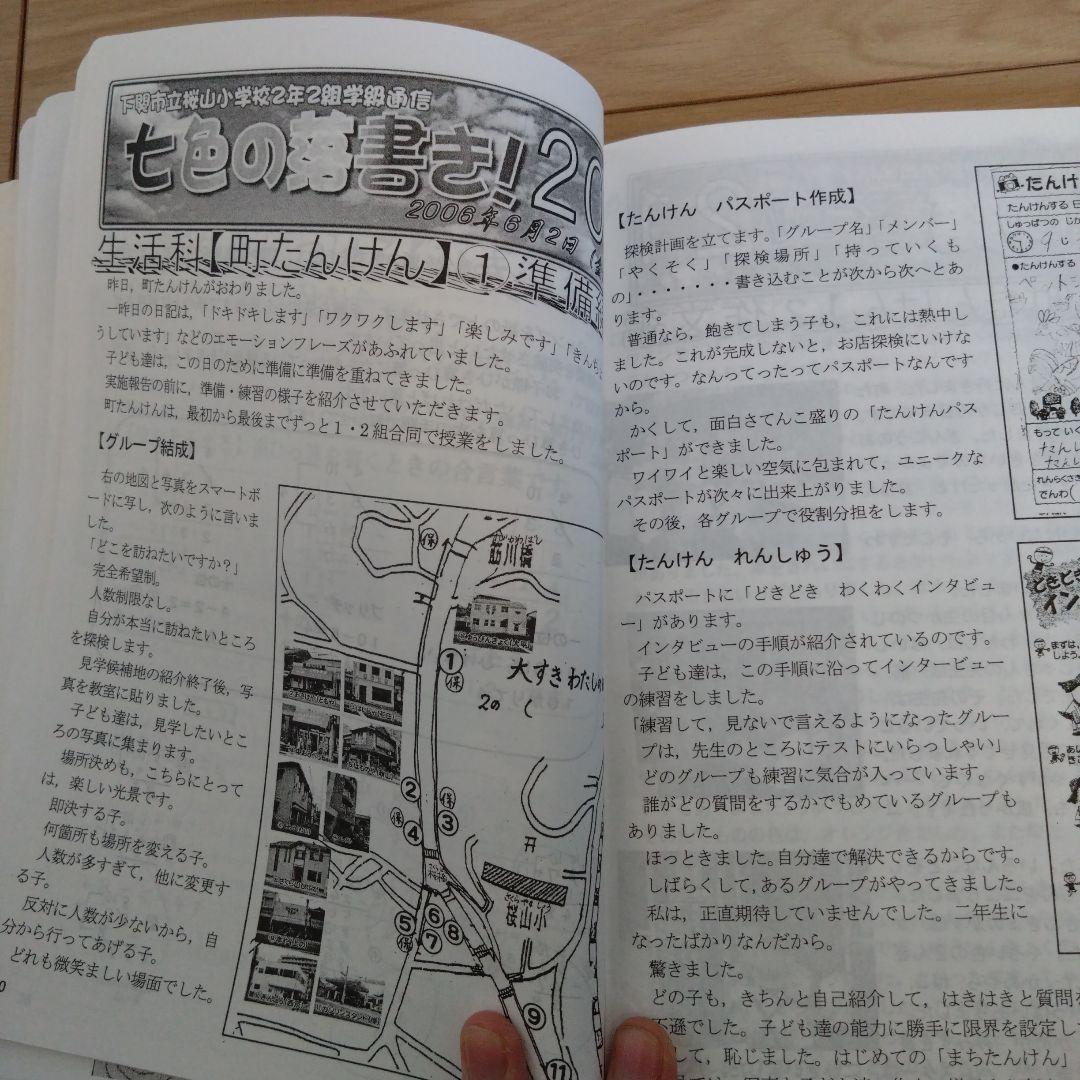 下関市立桜山小学校2年2組学級通信
七色の落書き!
2006年6月2日
生活科【町たんけん】①準備
昨日，町たんけんがおわりました。
一昨日の日記は，「ドキドキします」「ワクワクします」「楽しみです」「きんち
うしています」などのエモーションフレーズがあふれていました。
子ども達は，この日のために準備に準備を重ねてきました。
実施報告の前に，準備・練習の様子を紹介させていただきます。
町たんけんは，最初から最後までずっと1・2組合同で授業をしました。
【グループ結成】
右の地図と写真をスマートボ
ードに写し，次のように言いま
した。
「どこを訪ねたいですか？」
完全希望制。
人数制限なし。
自分が本当に訪ねたいところ
を探検します。
見学候補地の紹介終了後，写
真を教室に貼りました。
子ども達は，見学したいとこ
ろの写真に集まります。
場所決めも，こちらにとって
は，楽しい光景です。
即決する子。
何箇所も場所を変える子。
人数が多すぎて，他に変更す
る子。
反対に人数が少ないから，自
分から行ってあげる子。
どれも微笑ましい場面でした。
保
筋川橋
①
保
大すき わたしの
2の （
②
保
③
保
④
さくらやましょう
桜山小
⑤
保
⑥
⑦
⑧
⑨
⑪
【たんけん　パスポート作成】
探検計画を立てます。「グループ名」「メンバー」
「やくそく」「探検場所」「持っていくも
の」・・・・・・・書き込むことが次から次へとあ
ります。
普通なら，飽きてしまう子も，これには熱中し
ました。これが完成しないと，お店探検にいけな
いのです。なんってったってパスポートなんです
から。
かくして，面白さてんこ盛りの「たんけんパス
ポート」ができました。
ワイワイと楽しい空気に包まれて，ユニークな
パスポートが次々に出来上がりました。
その後，各グループで役割分担をします。
【たんけん　れんしゅう】
パスポートに「どきどき　わくわくインタビュ
ー」があります。
インタビューの手順が紹介されているのです。
子ども達は，この手順に沿ってインタービュー
の練習をしました。
「練習して，見ないで言えるようになったグルー
プは，先生のところにテストにいらっしゃい」
どのグループも練習に気合が入っています。
誰がどの質問をするかでもめているグループも
ありました。
ほっときました。自分達で解決できるからです。
しばらくして，あるグループがやってきました。
私は，正直期待していませんでした。二年生に
なったばかりなんだから。
驚きました。
どの子も，きちんと自己紹介して，はきはきと質問を
不遜でした。子ども達の能力に勝手に限界を設定し
して，恥じました。はじめての「まちたんけん」
たんけ
たんけんする
しゅっぱつの じか
●たんけんする
もって いく
れんらくさき
でんわ（
どきど
イン
まずは、
しよう。